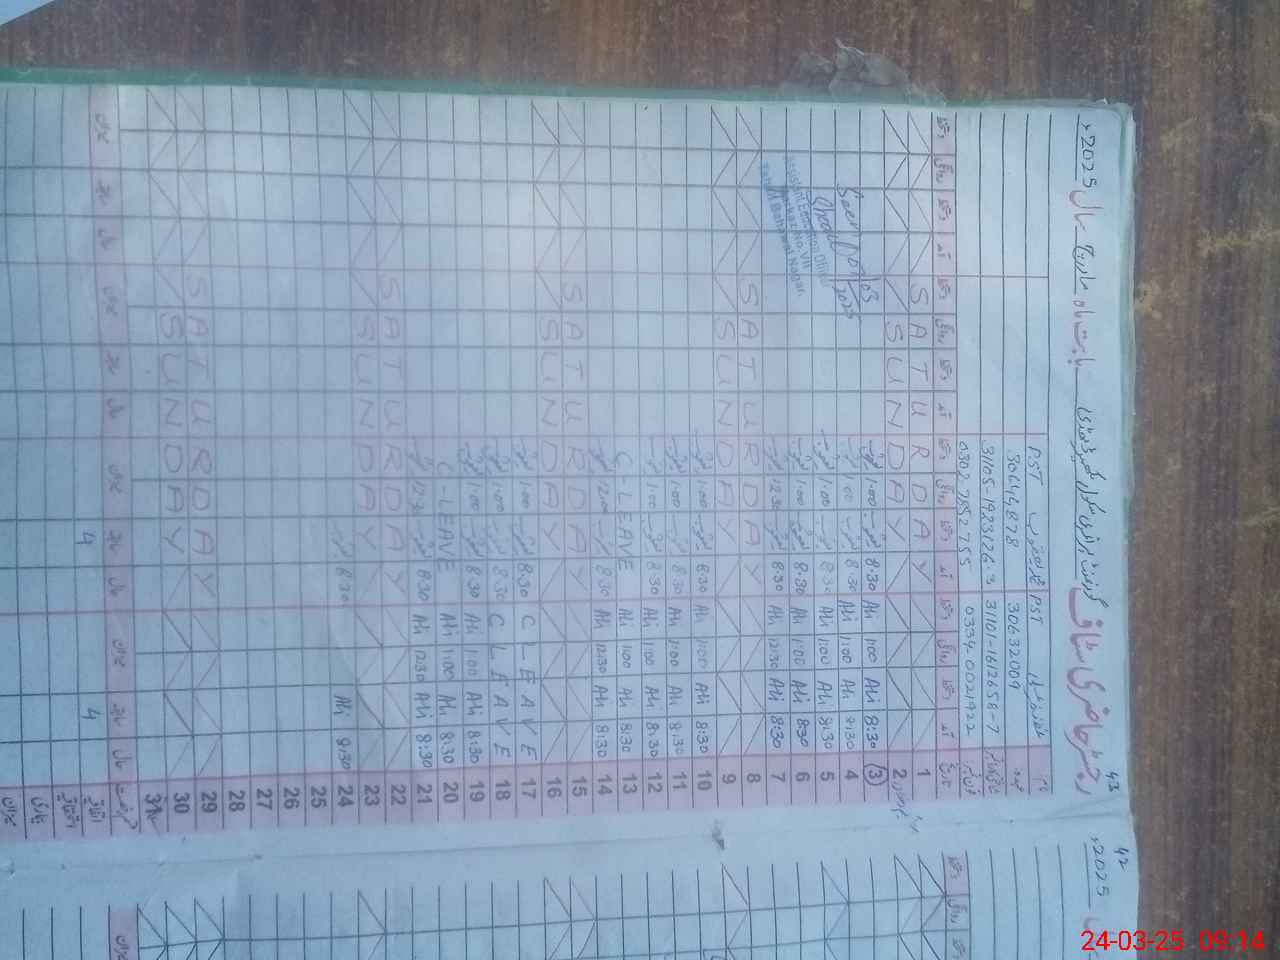 43
رجسٹر حاضری سٹاف گورنمنٹ پرائمری سکول بابت ماہ مارچ سال 2025ء
PST PST
30632009 30644878
31101-1612658-7 31105-1923126-3
0334-0021922 0302-7852755
تاریخ آمد دستخط روانگی دستخط آمد دستخط روانگی دستخط آمد دستخط روانگی دستخط آمد دستخط روانگی دستخط
1 SATURDAY
2 SUNDAY
3 8:30 Ali 1:00 Ali 8:30 1:00
4 8:30 Ali 1:00 Ali 8:30 1:00
5 8:30 Ali 1:00 Ali 8:30 1:00
6 8:30 Ali 1:00 Ali 8:30 1:00
7 8:30 Ali 12:30 Ali 8:30 12:30
8 SATURDAY
9 SUNDAY
10 8:30 Ali 1:00 Ali 8:30 1:00
11 8:30 Ali 1:00 Ali 8:30 1:00
12 8:30 Ali 1:00 Ali 8:30 1:00
13 8:30 Ali 1:00 Ali C-LEAVE
14 8:30 Ali 12:30 Ali 8:30 12:00
15 SATURDAY
16 SUNDAY
17 C LEAVE 8:30 1:00
18 C LEAVE 8:30 1:00
19 8:30 Ali 1:00 Ali 8:30 1:00
20 8:30 Ali 1:00 Ali C-LEAVE
21 8:30 Ali 12:30 Ali 8:30 12:30
22 SATURDAY
23 SUNDAY
24 8:30 Ali 8:30
25
26
27
28
29 SATURDAY
30 SUNDAY
31
رخصت حال سابقہ میزان حال سابقہ میزان حال سابقہ میزان حال سابقہ میزان
اتفاقیہ 4 4
بیماری
میزان
Seen
03
2025
Assistant Education Officer
Markaz No. VII
Bahawal Nagar.
42
2025ء
24-03-25 09:14